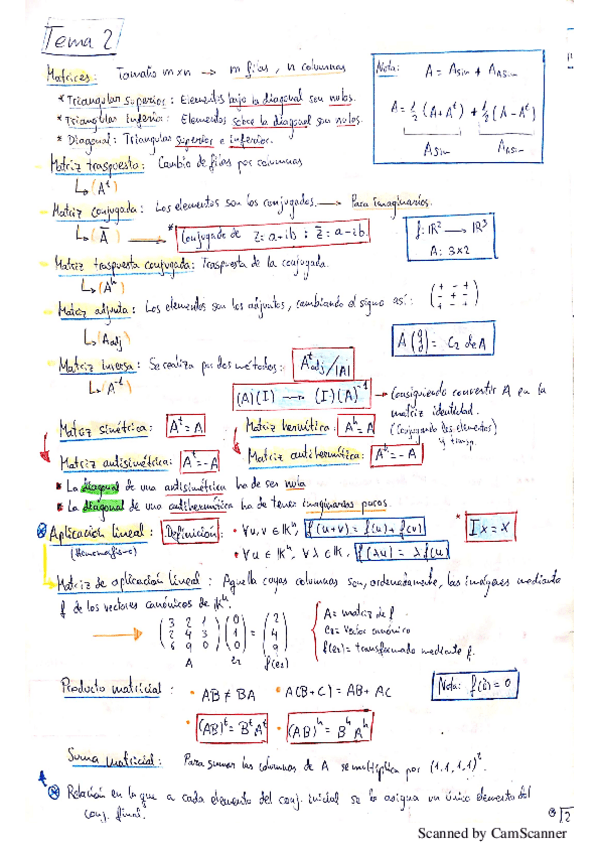 Tema 2
Matrices: Tamaño m×n → m filas, n columnas
* Triangular superior: Elementos bajo la diagonal son nulos.
* Triangular inferior: Elementos sobre la diagonal son nulos.
* Diagonal: Triangular superior e inferior.
Nota: A = Asim + AAsim
A = 1/2 (A + Aᵗ) + 1/2 (A - Aᵗ)
Asim AAsim
Matriz traspuesta: Cambio de filas por columnas
↳ (Aᵗ)
Matriz conjugada: Los elementos son los conjugados. → Para imaginarios.
↳ (Ā) → * Conjugado de z: a+ib ; z̄ = a-ib.
f: ℝ² → ℝ³
A: 3×2
Matriz traspuesta conjugada: Traspuesta de la conjugada.
↳ (Aʰ)
Matriz adjunta: Los elementos son los adjuntos, cambiando el signo así: (+ - + - + - + - +)
↳ (Aadj)
A (0 1 0) = C2 de A
Matriz inversa: Se realiza por dos métodos: Aᵗadj/|A|
↳ (A⁻¹)
(A)(I) → (I)(A)⁻¹ → Consiguiendo convertir A en la matriz identidad.
Matriz simétrica: Aᵗ = A
Matriz hermítica: Aʰ = A (Conjugando los elementos) y trasp.
Matriz antisimétrica: Aᵗ = -A
Matriz antihermítica: Aʰ = -A
• La diagonal de una antisimétrica ha de ser nula
• La diagonal de una antihermítica ha de tener imaginarios puros.
⊗ Aplicación lineal: Definición: • ∀u,v ∈ 𝕂ⁿ, f(u+v) = f(u) + f(v)
* Ix = x
• ∀u ∈ 𝕂ⁿ, ∀λ ∈ 𝕂, f(λu) = λf(u)
Matriz de aplicación lineal: Aquella cuyas columnas son, ordenadamente, las imágenes mediante
f de los vectores canónicos de 𝕂ⁿ.
→ (3 2 1; 2 4 3; 6 9 0) (0; 1; 0) = (2; 4; 9)
A e2 f(e2)
A = matriz de f
e2 = vector canónico
f(e2) = transformado mediante f.
Producto matricial: • AB ≠ BA • A(B+C) = AB + AC
Nota: f(0) = 0
• (AB)ᵗ = BᵗAᵗ • (AB)ʰ = BʰAʰ
Suma matricial: Para sumar las columnas de A se multiplica por (1,1,1,1)ᵗ.
⊗ Relación en la que a cada elemento del conj. inicial se le asigna un único elemento del
conj. final.
Scanned by CamScanner